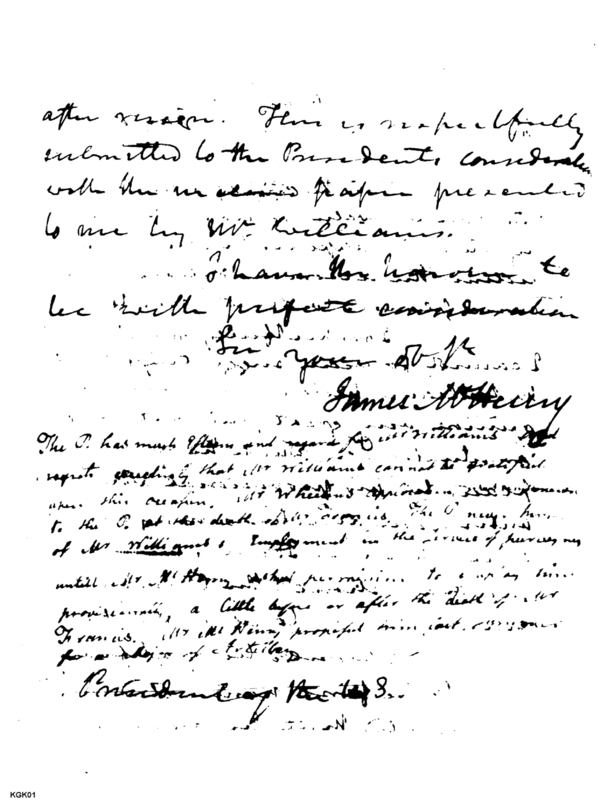 after
This is respectfully
submitted to the Presidents consideration
with the paper presented
to me by Mr Williams.
I have the honour to
be with perfect consideration
Sir your ob St
James McHenry
The P. has much Esteem and regard for Mr Williams and
regrets exceedingly that Mr Williams cannot be gratified
upon this occasion. Mr
to the P. at the death of Mr Francis. The P. never
of Mr Williams's Employment in the service of
untill Mr McHenry permission to employ him
provisionally, a little before or after the death of Mr
Francis. Mr McHenry proposed him last
for a Major of Artillery
President of the US.
KGK01